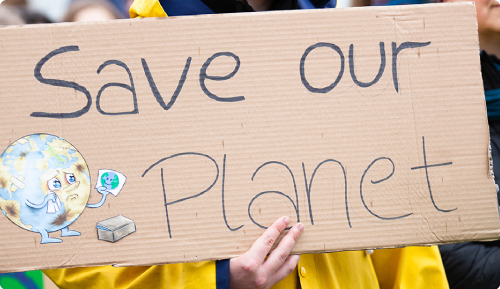 Save our
Planet